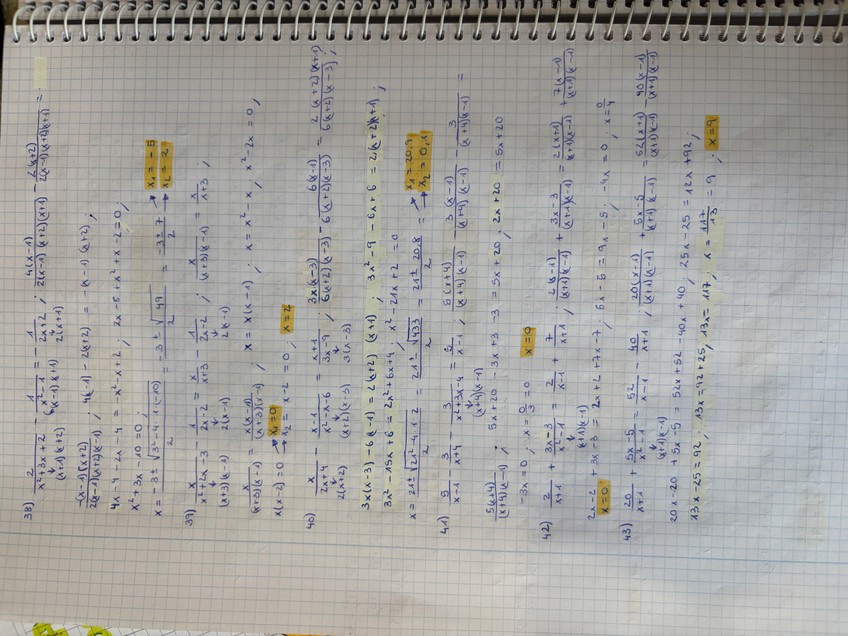 38) 2/(x²+3x+2) - 1/(x²-1) = - 1/(2x+2) ; 4(x-1)/(2(x-1)(x+2)(x+1)) - 2(x+2)/(2(x-1)(x+2)(x+1)) =
(x+1)(x+2) (x-1)(x+1) 2(x+1)
-(x-1)(x+2)/(2(x-1)(x+2)(x-1)) ; 4(x-1) - 2(x+2) = -(x-1)(x+2) ;
4x-4-2x-4 = -x²-x+2 ; 2x-8+x²+x-2=0 ;
x²+3x-10=0 ;
x = -3 ± √(3²-4·1·(-10))/2 = -3 ± √49/2 = -3±7/2 → x₁=-5
→ x₂=2
39) x/(x²+2x-3) - 1/(2x-2) = x/(x+3) - 1/(2x-2) ; x/((x+3)(x-1)) = x/(x+3) ;
(x+3)(x-1) 2(x-1) 2(x-1)
x/((x+3)(x-1)) = x(x-1)/((x+3)(x-1)) ; x = x(x-1) ; x = x²-x ; x²-2x=0 ;
x(x-2)=0 → x₁=0
→ x₂ = x-2=0 ; x=2
40) x/(2x+4) - (x-1)/(x²-x-6) = (x+1)/(3x-9) ; 3x(x-3)/(6(x+2)(x-3)) - 6(x-1)/(6(x+2)(x-3)) = 2(x+2)(x+1)/(6(x+2)(x-3)) ;
2(x+2) (x+2)(x-3) 3(x-3)
3x(x-3) - 6(x-1) = 2(x+2)(x+1) ; 3x²-9-6x+6 = 2(x+2)(x+1) ;
3x²-15x+6 = 2x²+6x+4 ; x²-21x+2=0
x = 21±√(21²-4·1·2)/2 = 21±√433/2 = 21±20,8/2 = → x₁=20,9
→ x₂=0,1
41) 5/(x-1) - 3/(x+4) - 3/(x²+3x-4) = 5/(x-1) ; 5(x+4)/((x+4)(x-1)) - 3(x-1)/((x+4)(x-1)) - 3/((x+4)(x-1)) =
(x+4)(x-1)
5(x+4)/((x+4)(x-1)) ; 5x+20-3x+3-3 = 5x+20 ; 2x+20 = 5x+20
-3x=0 ; x=0/3=0 x=0
42) 2/(x+1) + (3x-3)/(x²-1) = 2/(x-1) + 7/(x+1) ; 2(x-1)/((x+1)(x-1)) + (3x-3)/((x+1)(x-1)) = 2(x+1)/((x+1)(x-1)) + 7(x-1)/((x+1)(x-1))
(x+1)(x-1)
2x-2+3x-3 = 2x+2+7x-7 ; 5x-5 = 9x-5 ; -4x=0 ; x=0/4
x=0
43) 20/(x+1) + (5x-5)/(x²-1) = 52/(x-1) - 40/(x+1) ; 20(x-1)/((x+1)(x-1)) + (5x-5)/((x+1)(x-1)) = 52(x+1)/((x+1)(x-1)) - 40(x-1)/((x+1)(x-1))
(x+1)(x-1)
20x-20+5x-5 = 52x+52-40x+40 ; 25x-25 = 12x+92 ;
13x-25=92 ; 13x=92+25 ; 13x=117 ; x=117/13=9 ; x=9